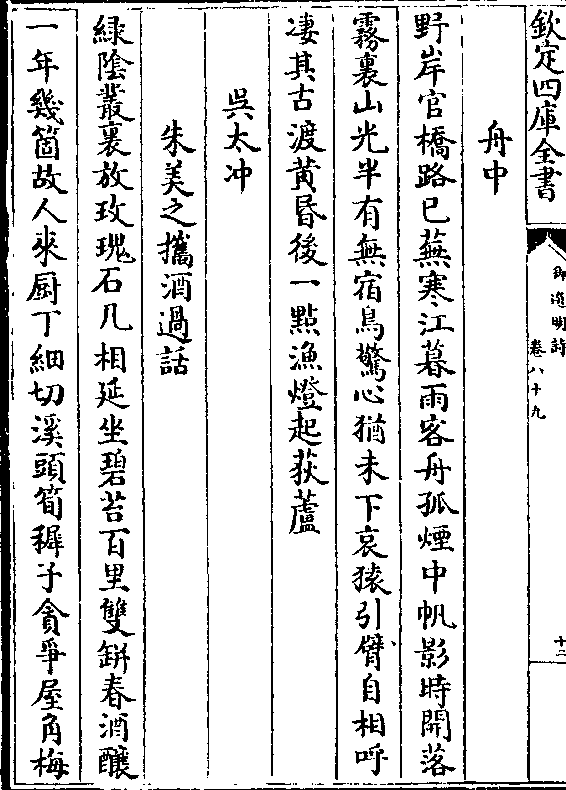 欽定四庫全書
御選明詩
卷八十九
十二
舟中
野岸官橋路已蕪寒江暮雨客舟孤煙中帆影時開落
霧裏山光半有無宿鳥驚心猶未下哀猿引臂自相呼
凄其古渡黄昏後一點漁燈起荻蘆
吳太冲
朱美之攜酒過話
緑陰叢裏放玫瑰石几相延坐碧苔百里雙缾春酒釀
一年幾箇故人來厨丁細切溪頭筍穉子貪爭屋角梅